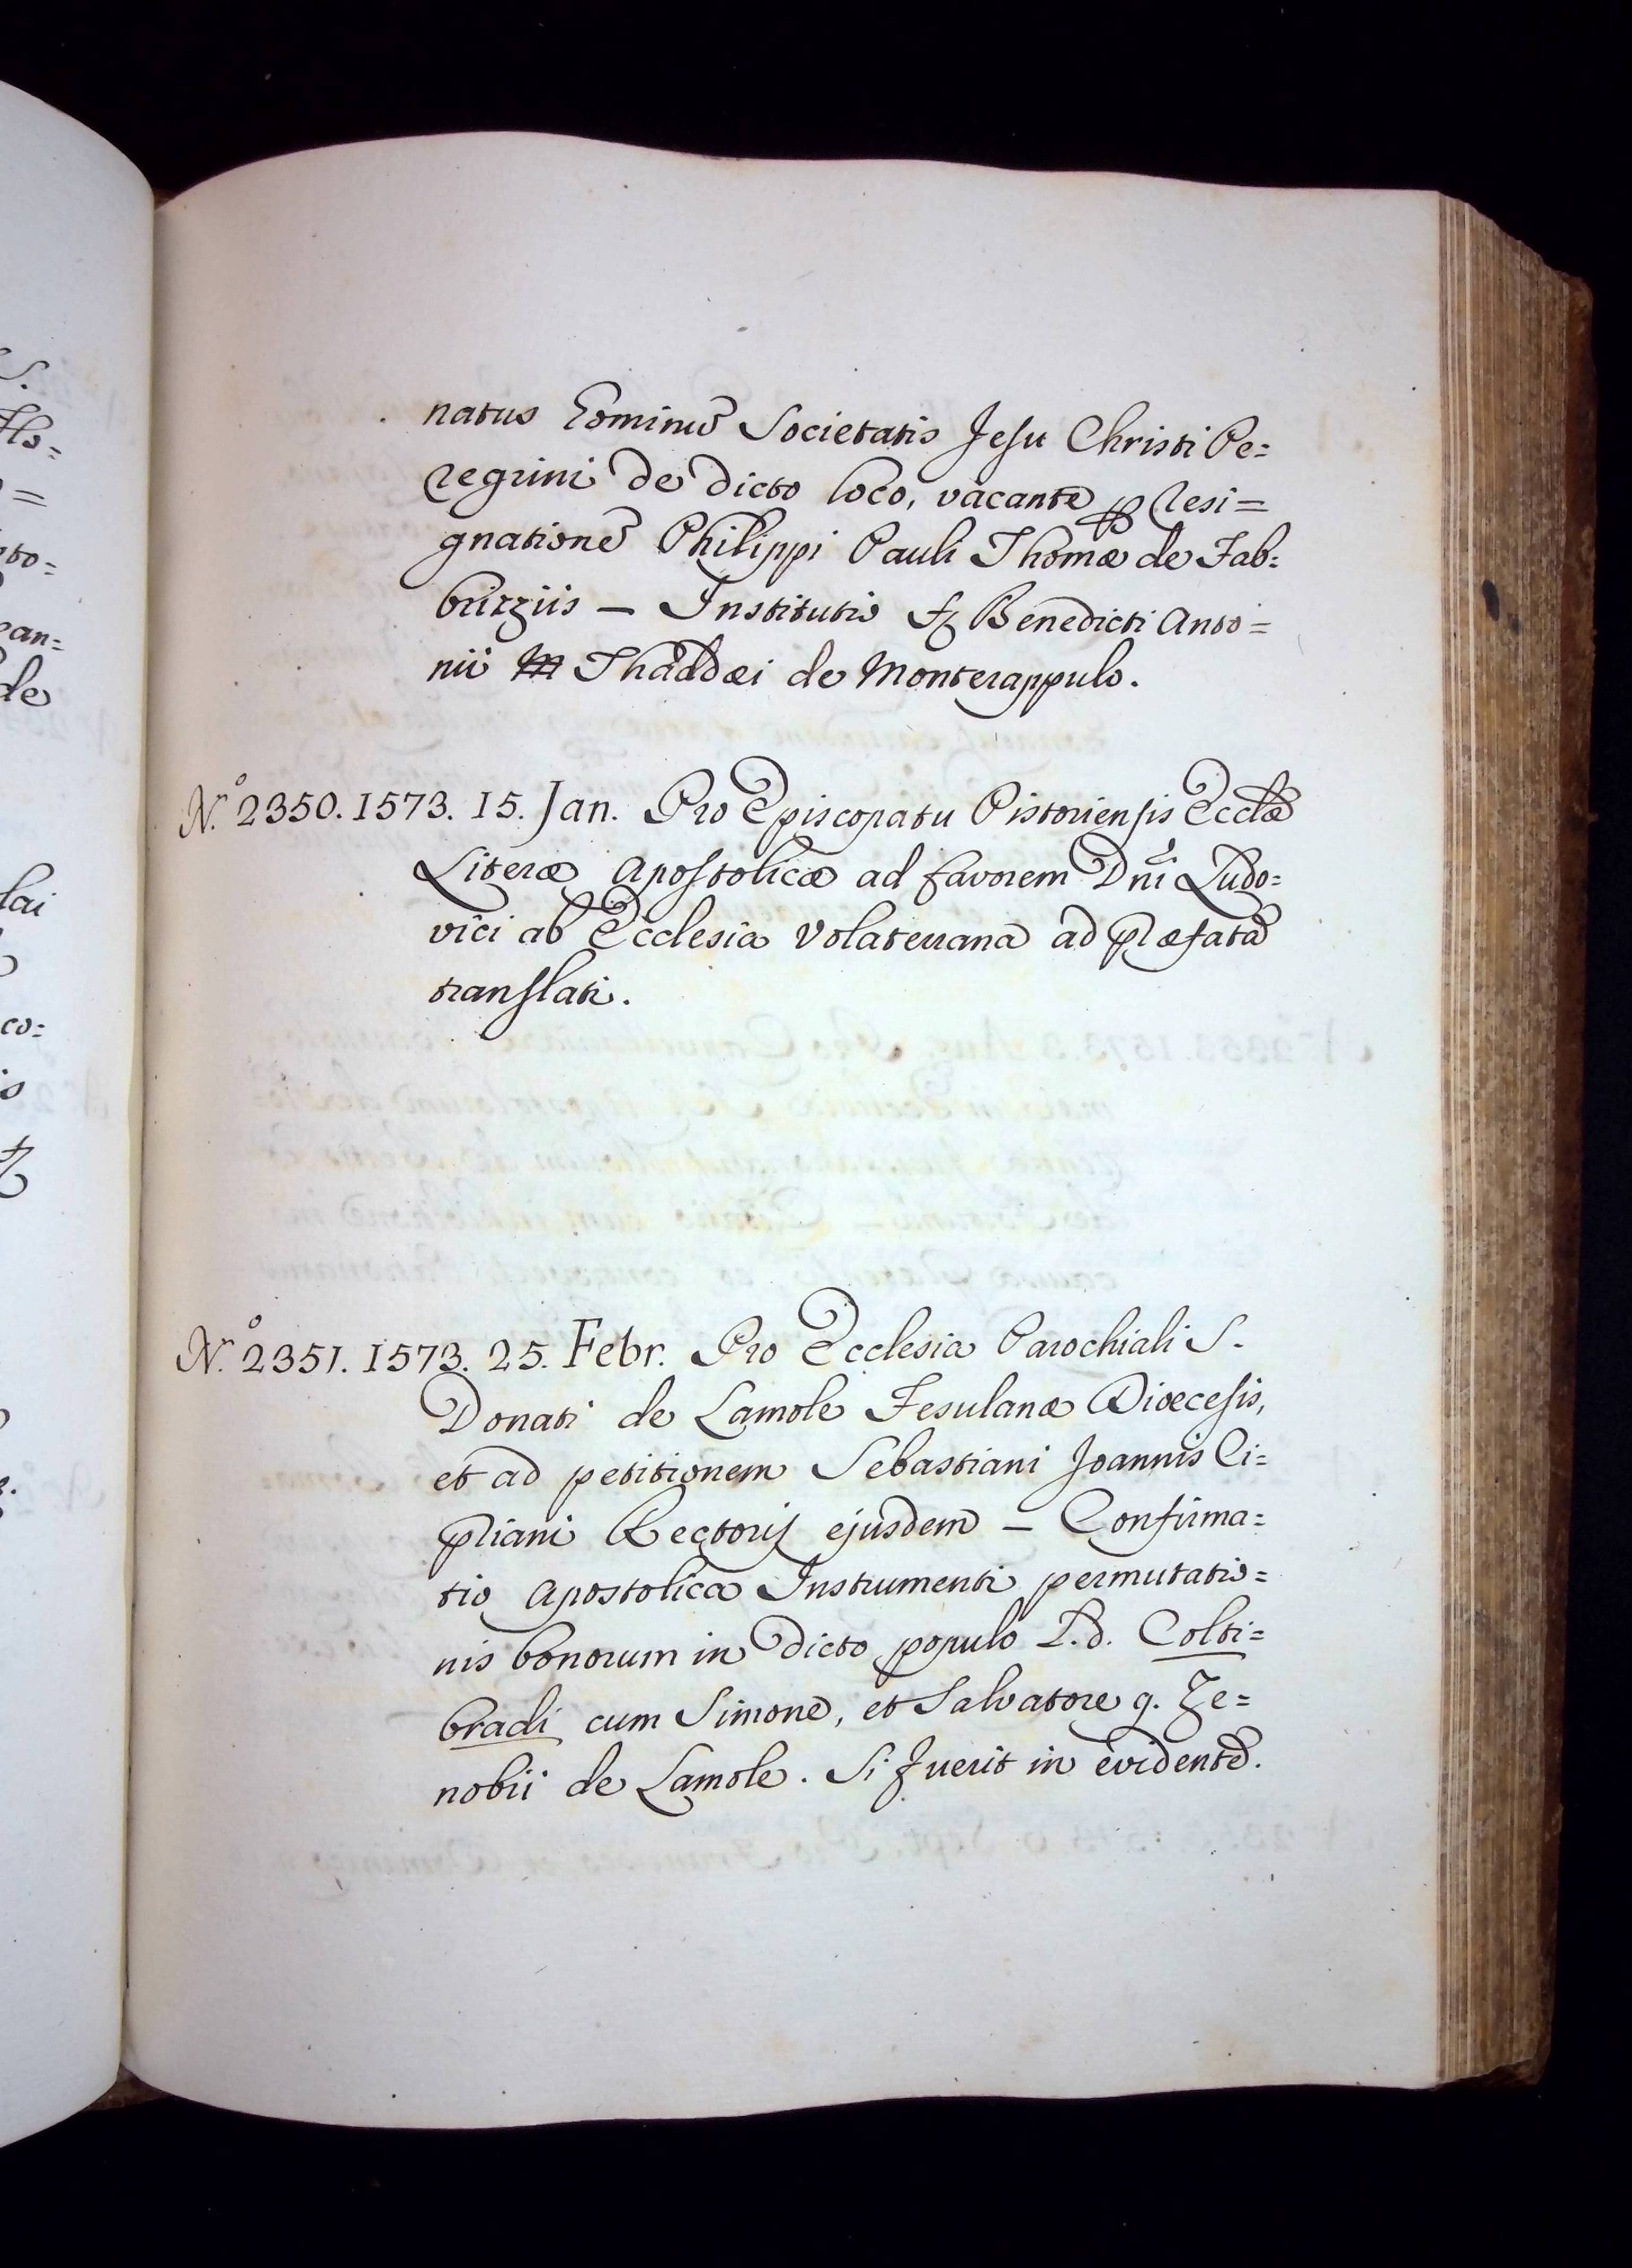 natus hominũ Societatis Jesu Christi Pe=
regrini de dicto loco, vacante ꝑ resi=
gnationẽ Philippi Pauli Thomæ de Fab=
brizziis — Institutio Benedicti Anto=
nii Thaddæi de Monterappulo.
N.º 2350. 1573. 15. Jan. Pro Episcopatu Pistoriensis Ecclæ
Literæ Apostolicæ ad favorem Dñi Ludo=
vici ab Ecclesia Volaterrana ad præfatã
translati.
N.º 2351. 1573. 25. Febr. Pro Ecclesia Parochiali S.
Donati de Lamole Fesulanæ Diœcesis,
et ad petitionem Sebastiani Joannis Ci=
priani Rectoris ejusdem — Confirma=
tio Apostolica Instrumenti permutatio=
nis bonorum in dicto populo L.d. Colti=
bradi cum Simone, et Salvatore q. Ze=
nobii de Lamole. Si fuerit in evidentẽ.